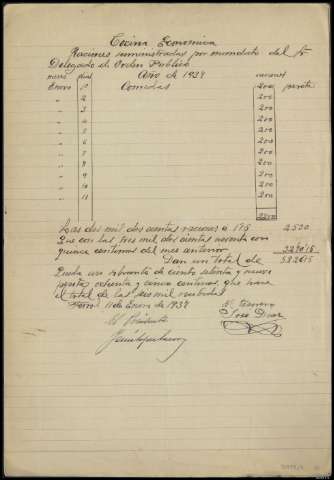 Cocina Economica
Raciones suministradas por mandato del Sr
Delegado de Orden Publico
meses dias Año de 1937 racions
Enero 1 Comidas 200 peseta
" 2 200
" 3 200
" 4 200
" 5 200
" 6 200
" 7 200
" 8 200
" 9 200
" 10 200
" 11 200
2200
Las dos mil dos cientas raciones a 1'15 2520
Que con las tres mil dos cientas noventa con
quince centimos del mes anterior 3290'15
Dan un total de 5820'15
Queda un sobrante de ciento setenta y nueve
pesetas ochenta y cinco centimos, que hace
el total de las seis mil recibidas
11 de Enero de 1937
El Presidente
El tesorero
Jose Diaz